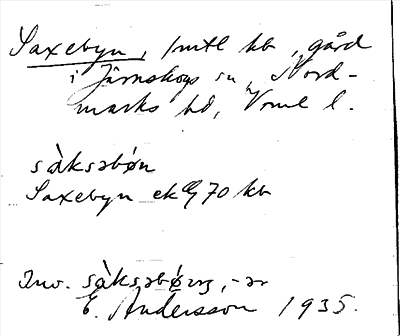 Saxebyn, 1 mtl kb, gård
i Järnskogs sn, Nord-
marks hd, Vrml l.
sàksəbø̀n
Saxebyn ek 70 kb
Inv. sàksəbø̀rɪŋ, -ər
E. Andersson 1935.